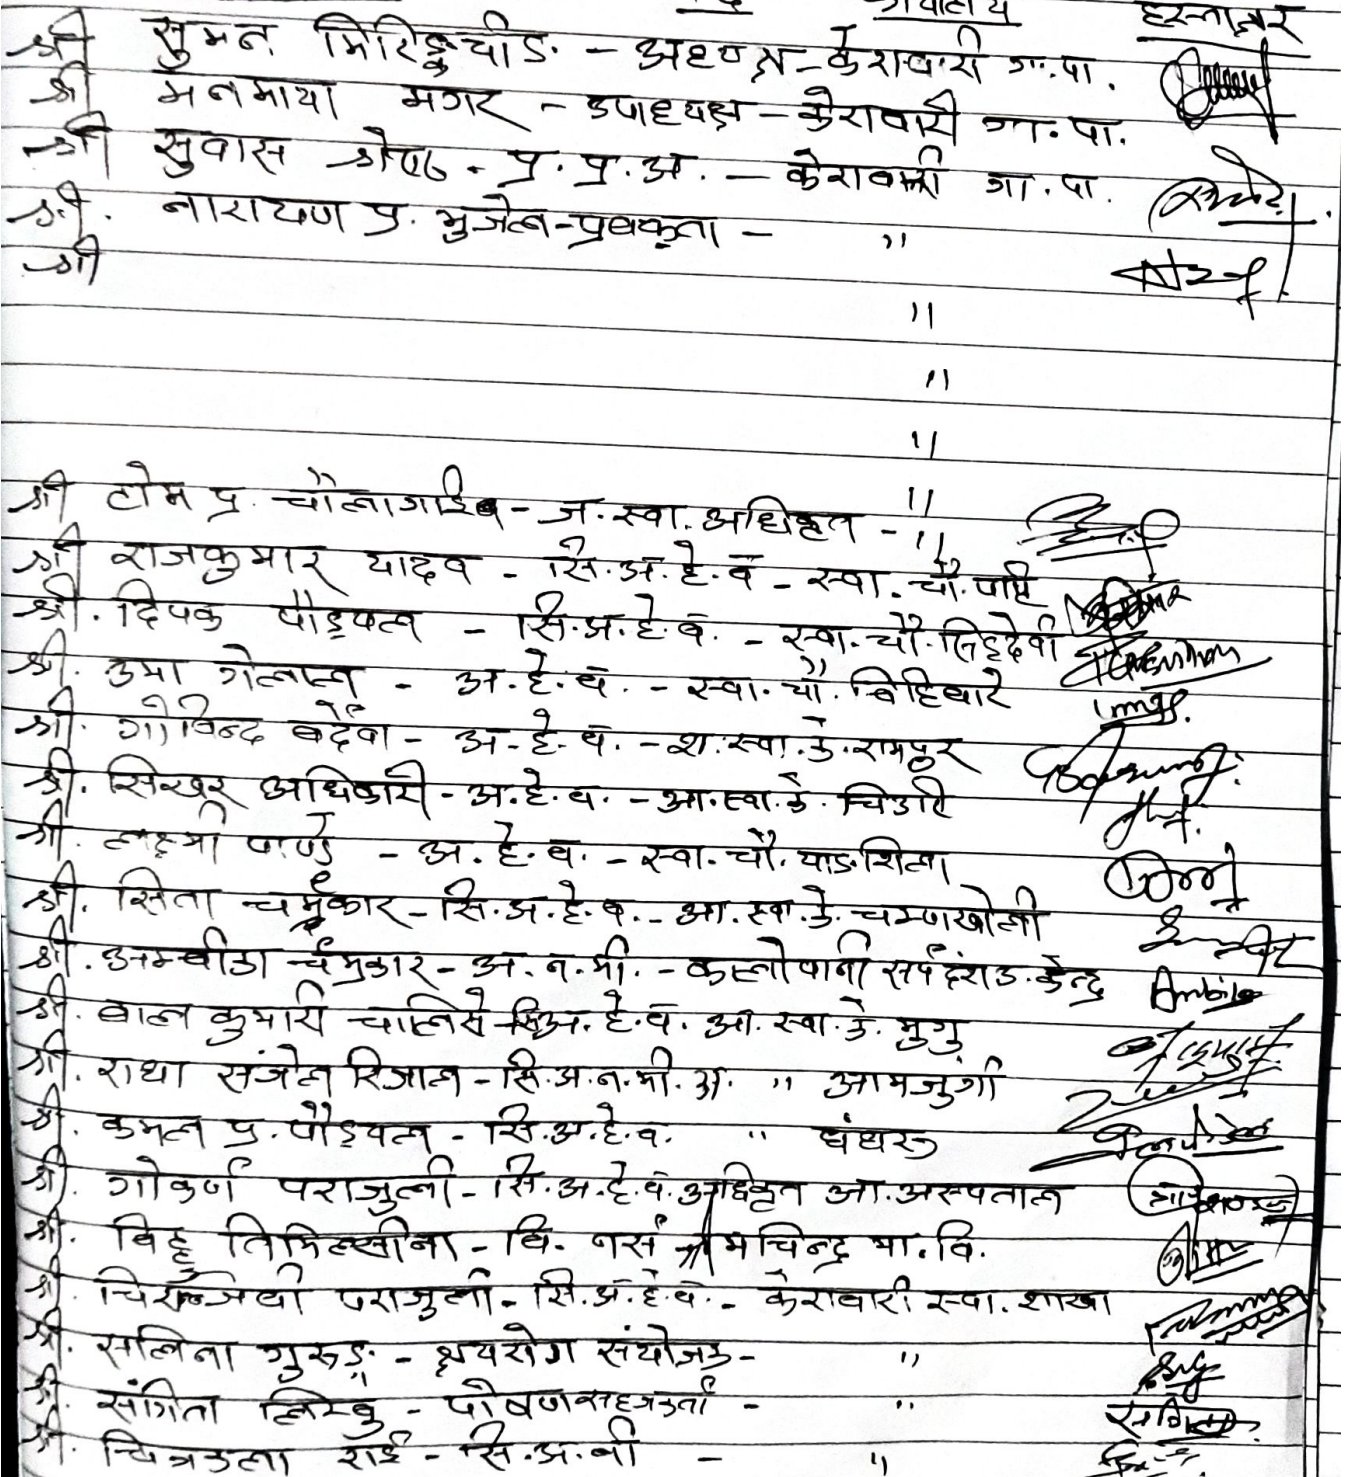 पद कार्यालय हस्ताक्षर
श्री सुमन मिटिङ्चोङ - अध्यक्ष - केराबारी गा.पा.
श्री मनमाया मगर - उपाध्यक्ष - केराबारी गा.पा.
श्री सुवास श्रेष्ठ - प्र.प्र.अ. - केराबारी गा.पा.
श्री. नारायण प्र. भुजेल - प्रवक्ता - "
श्री
"
"
"
श्री टोम प्र. चौलागाईं - ज. स्वा. अधिकृत - "
श्री राजकुमार यादव - सि.अ.हे.व - स्वा. चौ.
श्री. दिपक पौड्यल - सि.अ.हे.व. - स्वा. चौ. सिंहदेवी
श्री. उमा गेलाल - अ.हे.व. - स्वा. चौ.
श्री. गोविन्द बर्देवा - अ.हे.व. - श. स्वा. के. रामपुर
श्री. सिखर अधिकारी - अ.हे.व. - आ.स्वा.के.
श्री. लक्ष्मी पाण्डे - अ.हे.व. - स्वा. चौ. याङशिला
श्री. सिता चर्मकार - सि.अ.हे.व. - आ.स्वा.के.
श्री. अम्बीका चर्मकार - अ.न.मी. - कालोपानी सर्पदंश उ. केन्द्र Ambika
श्री. बाल कुमारी चालिसे - सि.अ.हे.व. आ. स्वा. के. मुगु
श्री. राधा संजेल रिजाल - सि.अ.न.मी.अ. " आमजुंगी
श्री. कमल प्र. पौड्यल - सि.अ.हे.व. " घंघरु
श्री. गोकर्ण पराजुली - सि.अ.हे.व. अधिकृत आ. अस्पताल
श्री. विदु तिमिल्सीना - वि. नर्स श्री मचिन्द्र मा.वि.
श्री. चिरञ्जिवी पराजुली - सि.अ.हे.व. - केराबारी स्वा. शाखा
श्री. सलिना गुरुङ - क्षयरोग संयोजक - "
श्री. संगिता लिम्बु - पोषण सहजकर्ता - " संगिता
श्री. चित्रकला राई - सि.अ.वी - "